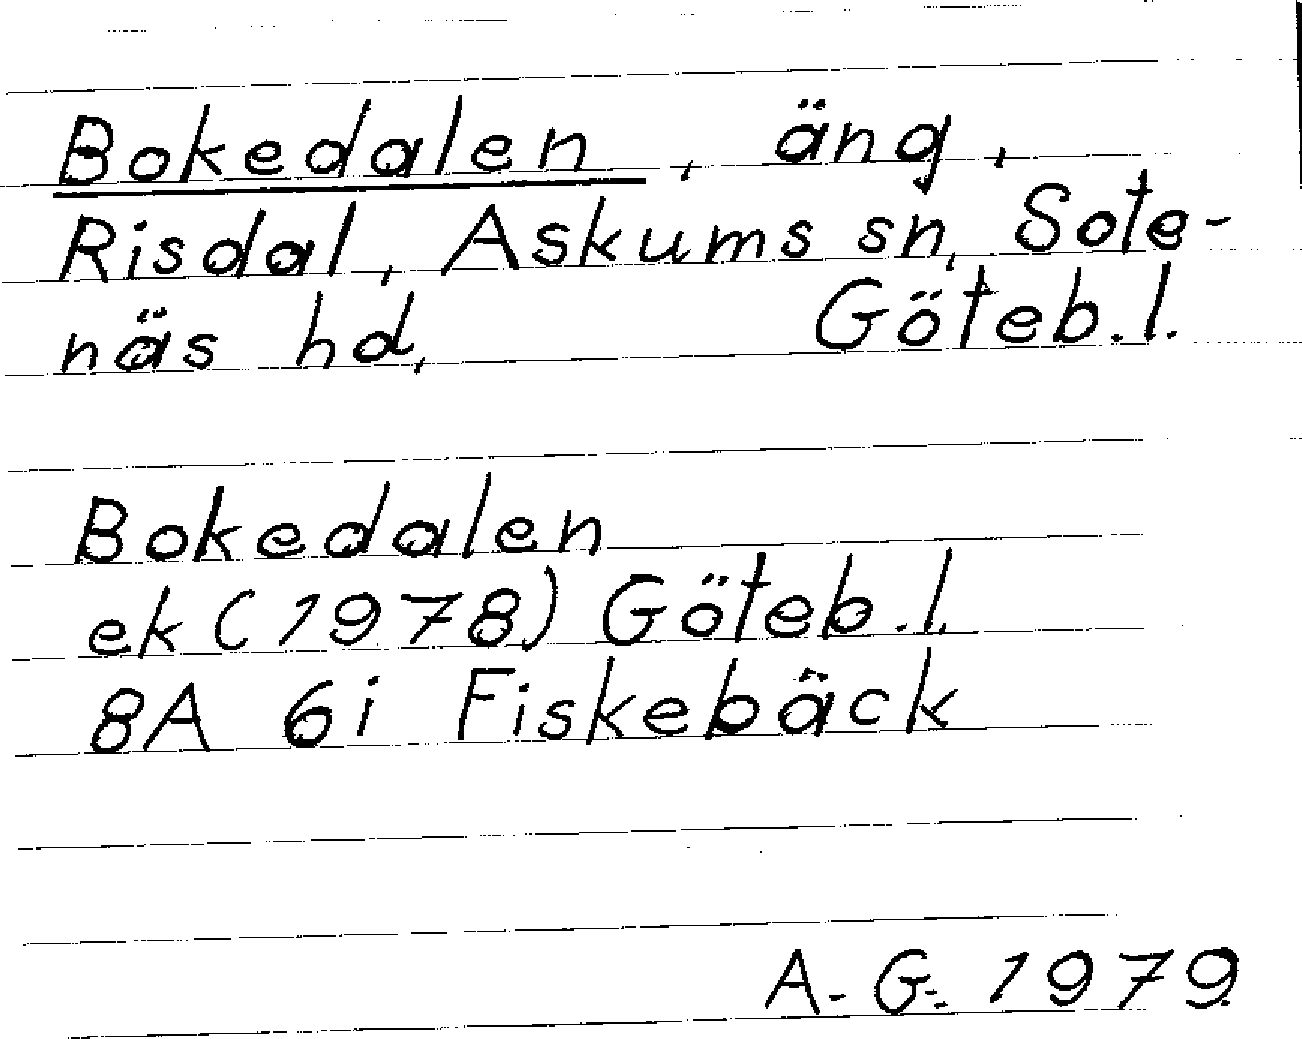 Bokedalen, äng,
Risdal, Askums sn, Sote-
näs hd, Göteb.l.
Bokedalen
ek (1978) Göteb.l.
8A 6i Fiskebäck
A. G. 1979